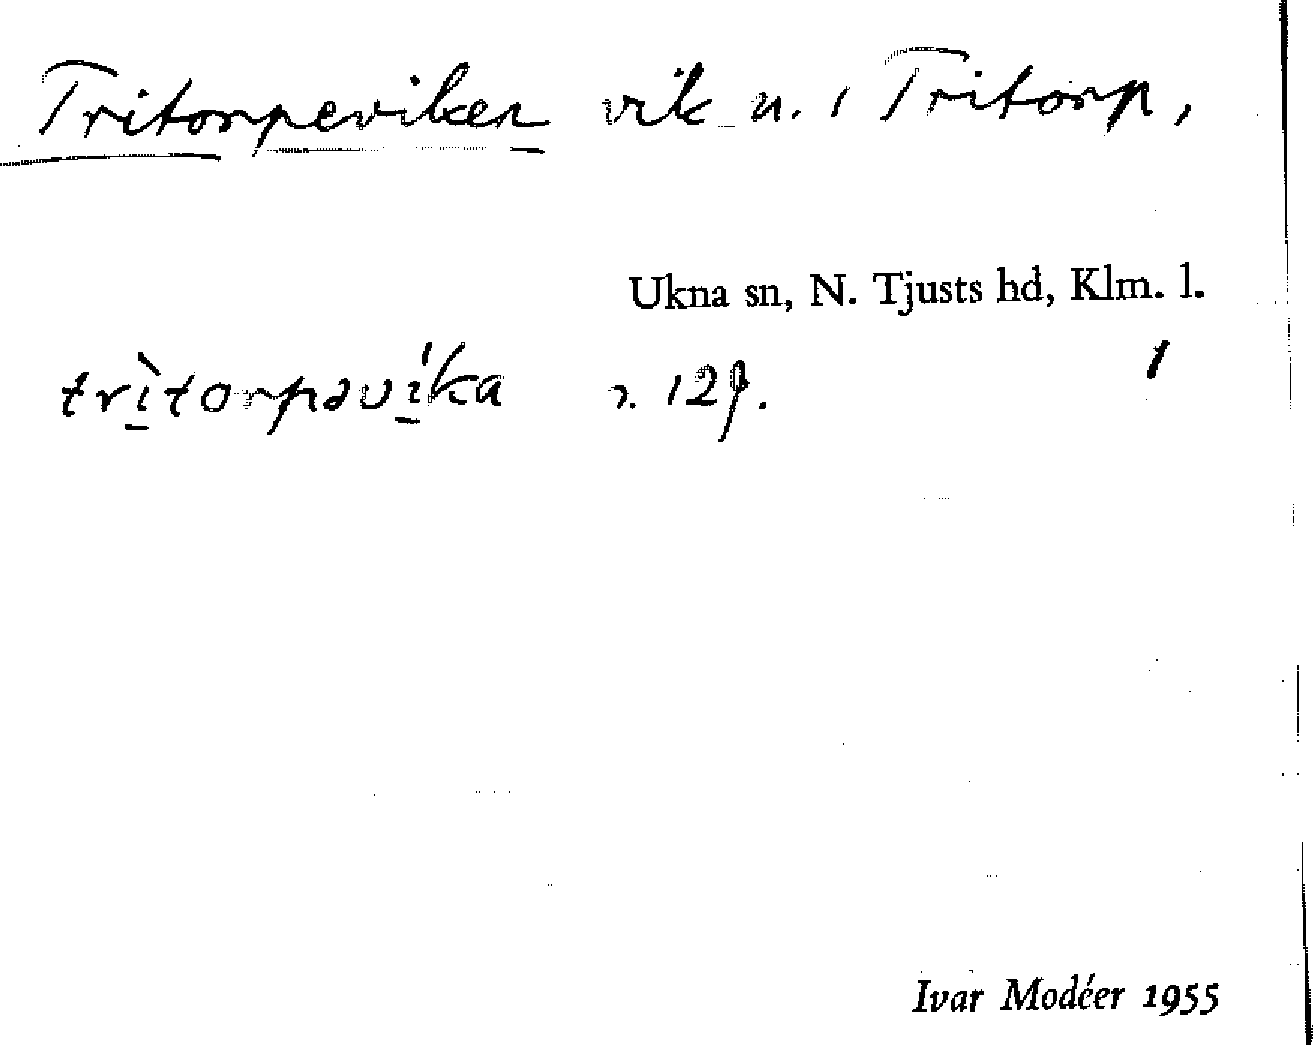 Tritorpeviken vik n. i Tritorp,
Ukna sn, N. Tjusts hd, Klm. l.
trìtorpəvíka s. 129. 1
Ivar Modéer 1955